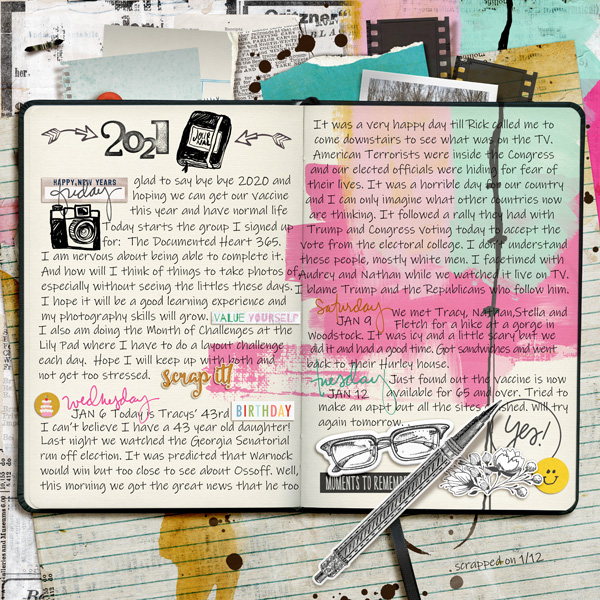 2021
JOURNAL
HAPPY NEW YEARS
friday
glad to say bye bye 2020 and
hoping we can get our vaccine
this year and have normal life
Today starts the group I signed up
for: The Documented Heart 365.
I am nervous about being able to complete it.
And how will I think of things to take photos of
especially without seeing the littles these days.
I hope it will be a good learning experience and
my photography skills will grow. VALUE YOURSELF
I also am doing the Month of Challenges at the
Lily Pad where I have to do a layout challenge
each day. Hope I will keep up with both and
not get too stressed. scrap it!
Wednesday
JAN 6 Today is Tracys' 43rd BIRTHDAY
I can't believe I have a 43 year old daughter!
Last night we watched the Georgia Senatorial
run off election. It was predicted that Warnock
would win but too close to see about Ossoff. Well,
this morning we got the great news that he too
It was a very happy day till Rick called me to
come downstairs to see what was on the TV.
American Terrorists were inside the Congress
and our elected officials were hiding for fear of
their lives. It was a horrible day in our country
and I can only imagine what other countries now
are thinking. It followed a rally they had with
Trump and Congress voting today to accept the
vote from the electoral college. I don't understand
these people, mostly white men. I facetimed with
Audrey and Nathan while we watched it live on TV.
I blame Trump and the Republicans who follow him.
Saturday
JAN 9
We met Tracy, Nathan, Stella and
Fletch for a hike at a gorge in
Woodstock. It was icy and a little scary but we
did it and had a good time. Got sandwiches and went
back to their Hurley house.
tuesday
JAN 12
Just found out the vaccine is now
available for 65 and over. Tried to
make an appt but all the sites will try
again tomorrow.
Yes!
MOMENTS TO REMEMBER
scrapped on 1/12